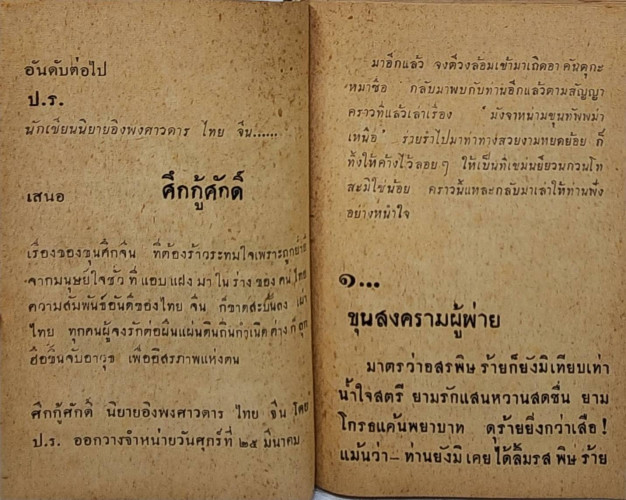 อันดับต่อไป
ป.ร.
นักเขียนนิยายอิงพงศาวดาร ไทย จีน......
เสนอ ศึกกู้ศักดิ์
เรื่องของขุนศึกจีน ที่ต้องร้าวระทมใจเพราะถูก
จากมนุษย์ใจชั่วที่แอบแฝงมาในร่างของคนไทย
ความสัมพันธ์อันดีของไทย จีน ก็ขาดสะบั้นลง เผา
ไทย ทุกคนผู้จงรักต่อผืนแผ่นดินถิ่นกำเนิดต่างก็
ฮือขึ้นจับอาวุธ เพื่ออิสรภาพแห่งตน
ศึกกู้ศักดิ์ นิยายอิงพงศาวดาร ไทย จีน โดย
ป.ร. ออกวางจำหน่ายวันศุกร์ที่ ๒๕ มีนาคม
มาอีกแล้ว จงตีวงล้อมเข้ามาเถิดอาคันตุกะ
หมาซื่อ กลับมาพบกับท่านอีกแล้วตามสัญญา
คราวที่แล้วเล่าเรื่อง มังจาหนามขุนทัพพม่า
เหนือ รายรำไปมาท่าทางสวยงามหยดย้อย ก็
ทิ้งให้ค้างไว้ลอยๆ ให้เป็นที่เขม่นยียวนกวนโท
สะมิใช่น้อย คราวนี้แหละกลับมาเล่าให้ท่านฟัง
อย่างหนำใจ
๑...
ขุนสงครามผู้พ่าย
มาตรว่าอสรพิษร้ายก็ยังมิเทียบเท่า
น้ำใจสตรี ยามรักแสนหวานสดชื่น ยาม
โกรธแค้นพยาบาท ดุร้ายยิ่งกว่าเสือ!
แม้นว่า – ท่านยังมิเคยได้ลิ้มรสพิษร้าย